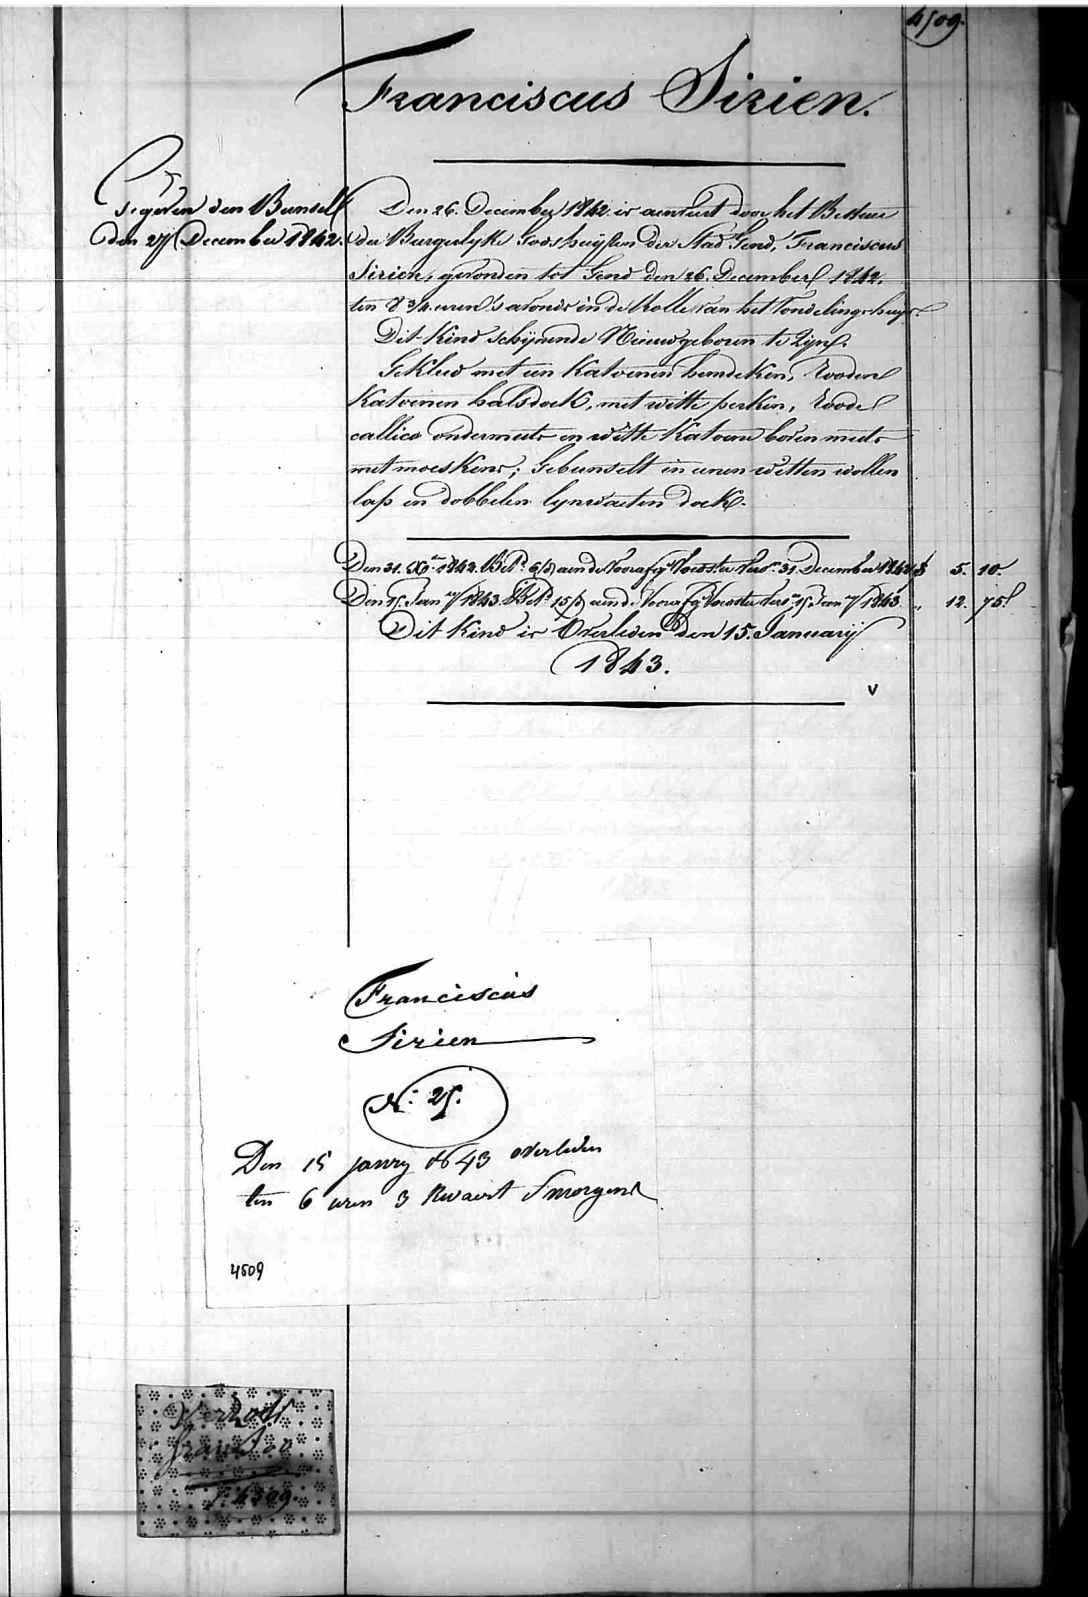 4509.
Franciscus Sirien.
Gegeven den Bunsel
den 27 December 1842.
Den 26. December 1842. is aenveirt door het Bestuur
der Burgerlyke Godshuysen der Stad Gend, Franciscus
Sirien, gevonden tot Gend den 26. December 1842.
ten 8 3/4. uren 's avonds in de Rolle van het Vondelingshuys.
Dit Kind schijnende Nieuwgeboren te Zyn.
Gekleed met een Katoenen hemdeken, Rooden
Katoenen halsdoek, met witte perken, Roode
callico ondermuts en witte Katoene bovenmuts
met moeskens; Gebunselt in eenen witten wollen
lap en dobbelen lynwaeten doek.
Den 31. Xb. 1842. Bet. aen de Voorafg. Voedster Vers. 31. December 1842 5. 10.
Den 15. Jan. 1843. Bet. 15 aen de Voorafg. Voedster Vers. 15 Jan. 1843. 12. 75
Dit Kind is Overleden den 15. January
1843.
v
Franciscus
Sirien
N. 25.
Den 15 janry 1843 overleden
ten 6 uren 3 kwaert Smorgens
4509
4509.